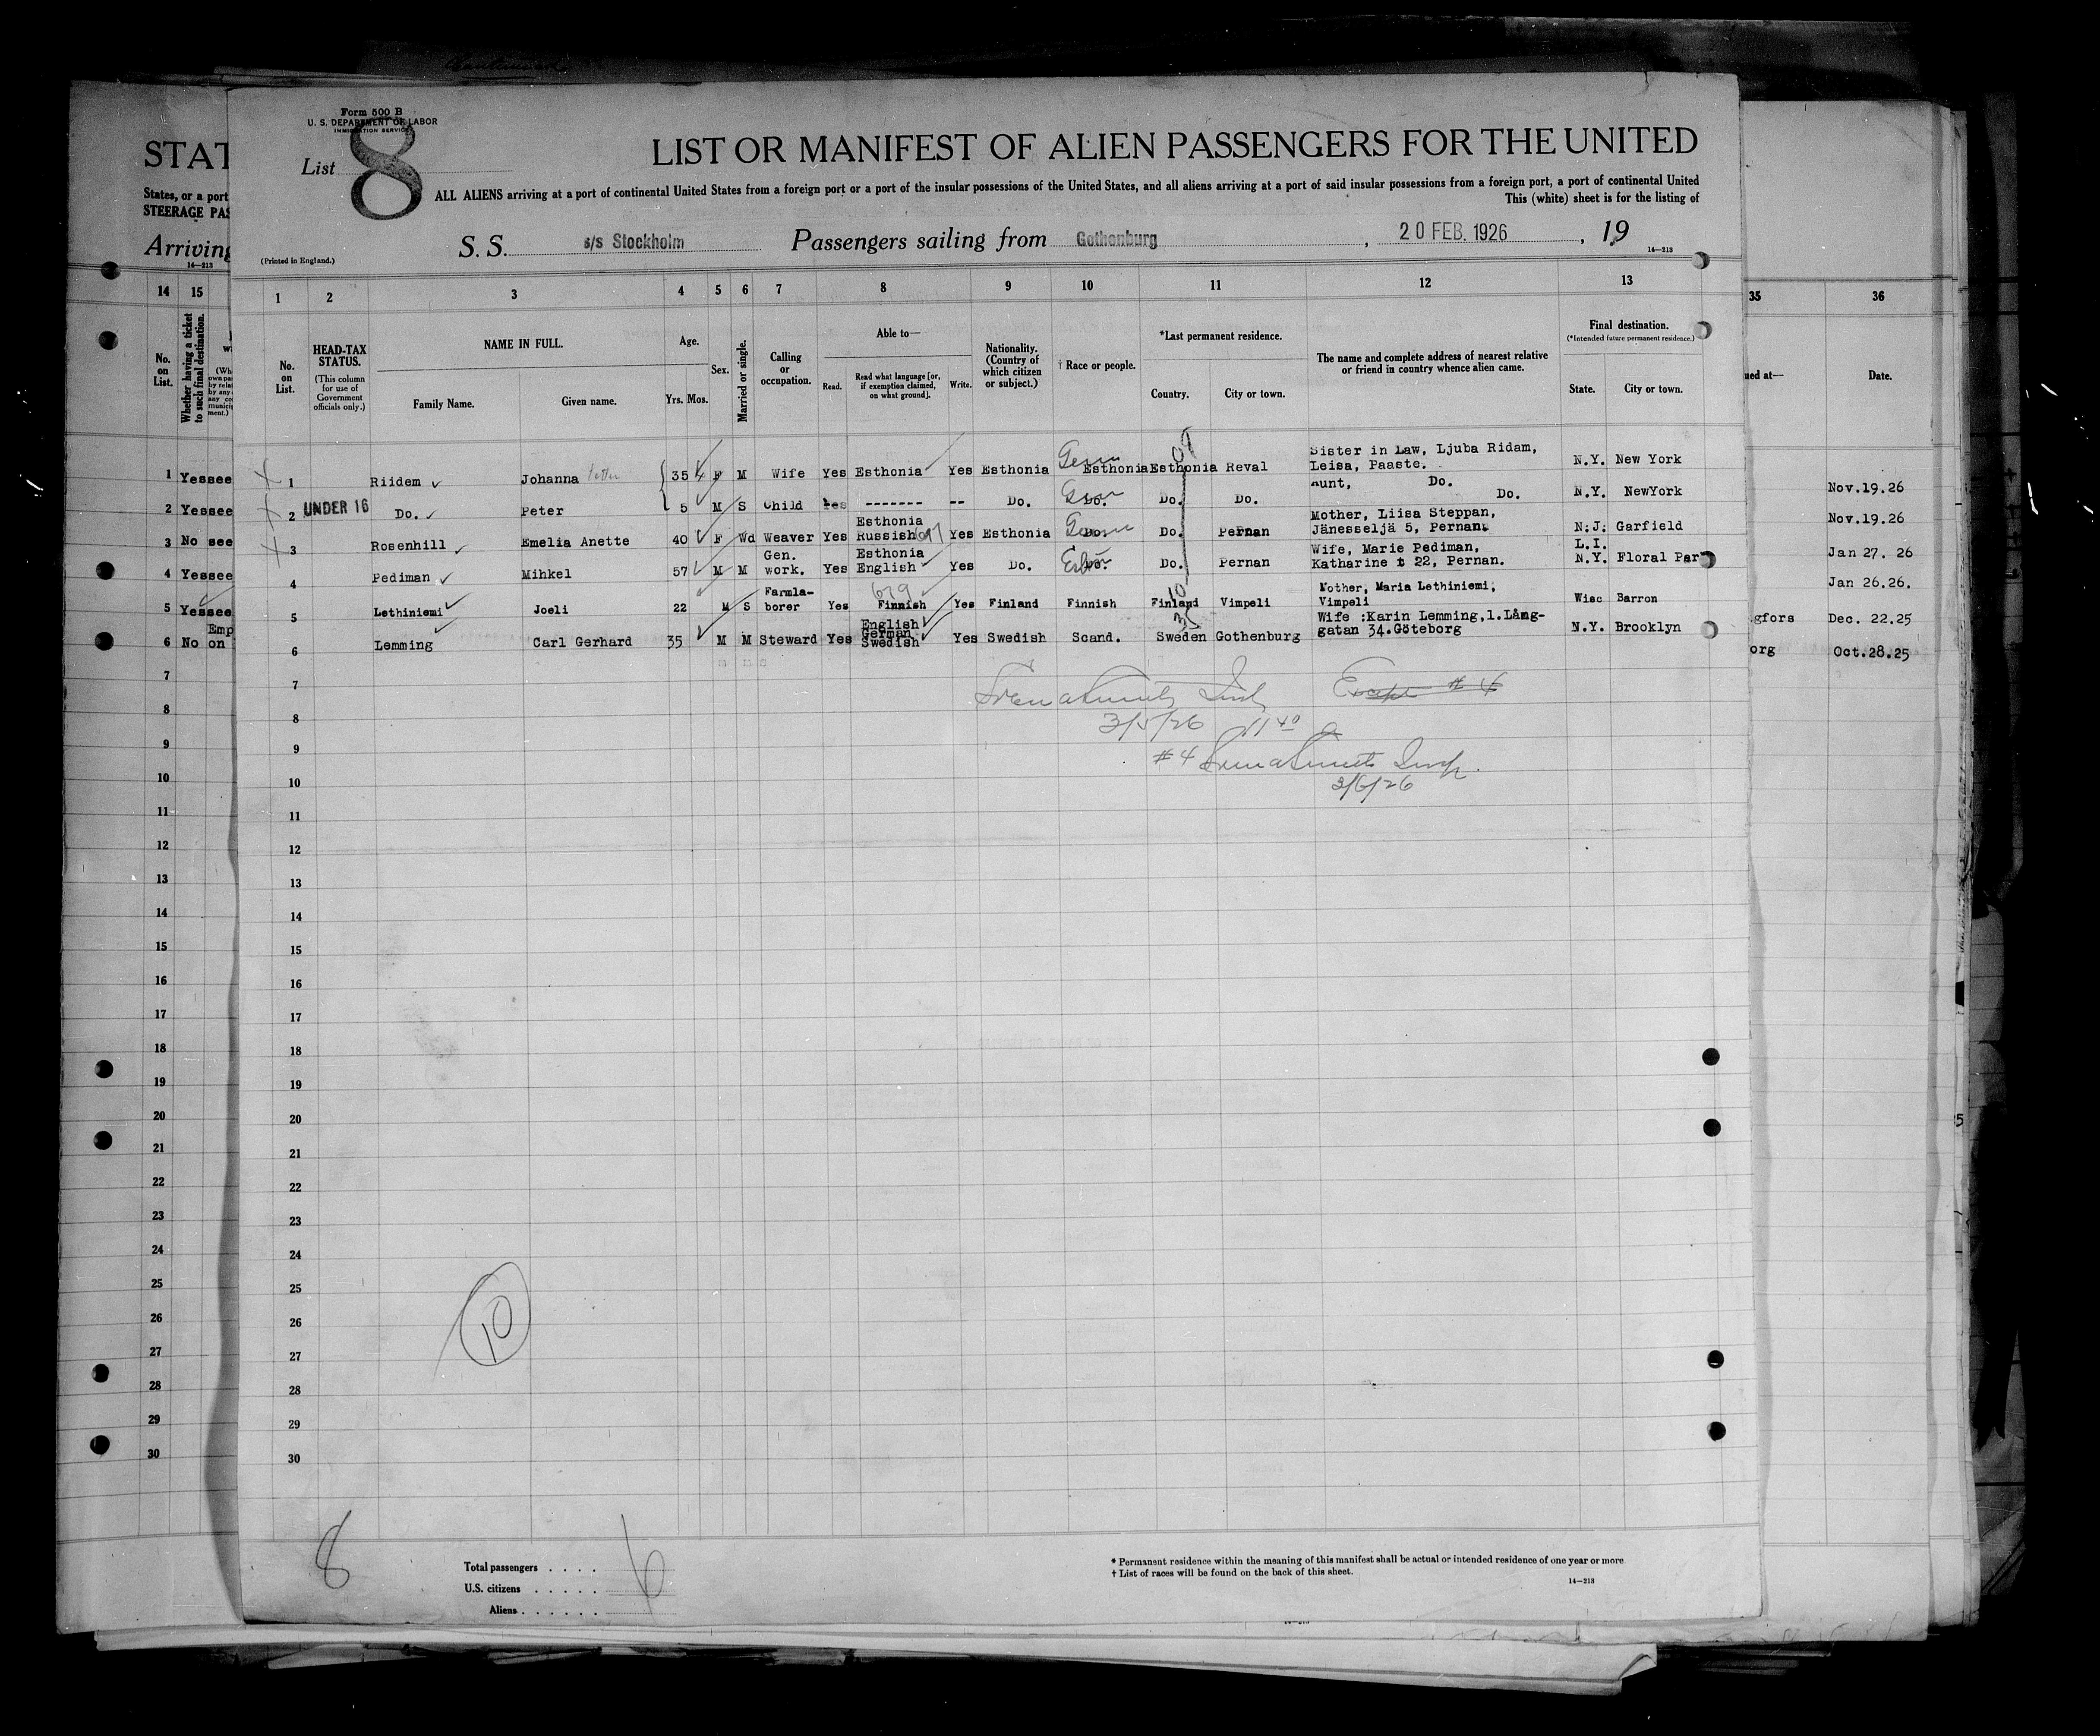 Form 500 B
U. S. DEPARTMENT OF LABOR
IMMIGRATION SERVICE
List 8
LIST OR MANIFEST OF ALIEN PASSENGERS FOR THE UNITED
ALL ALIENS arriving at a port of continental United States from a foreign port or a port of the insular possessions of the United States, and all aliens arriving at a port of said insular possessions from a foreign port, a port of continental United
This (white) sheet is for the listing of
S. S. s/s Stockholm Passengers sailing from Gothenburg, 20 FEB. 1926, 19
(Printed in England.)
14—213
STAT
States, or a port
STEERAGE PAS
Arriving
14—213
14 15
No. on List.
Whether having a ticket to such final destination.
1 2 3 4 5 6 7 8 9 10 11 12 13
35 36
No. on List.
HEAD-TAX STATUS.
(This column for use of Government officials only.)
NAME IN FULL.
Family Name. Given name.
Age.
Yrs. Mos.
Sex.
Married or single.
Calling or occupation.
Able to—
Read. Read what language [or, if exemption claimed, on what ground]. Write.
Nationality. (Country of which citizen or subject.)
† Race or people.
*Last permanent residence.
Country. City or town.
The name and complete address of nearest relative or friend in country whence alien came.
Final destination.
(*Intended future permanent residence.)
State. City or town.
ued at— Date.
1 Yessee 1 Riidem Johanna 35 4 F M Wife Yes Esthonia Yes Esthonia Esthonia Esthonia Reval Sister in Law, Ljuba Ridam, Leisa, Paaste. N.Y. New York Nov.19.26
2 Yessee 2 UNDER 16 Do. Peter 5 M S Child Yes ------- -- Do. Do. Do. Do. Aunt, Do. Do. N.Y. NewYork Nov.19.26
3 No see 3 Rosenhill Emelia Anette 40 F Wd Weaver Yes Esthonia Russish Yes Esthonia Do. Do. Pernan Mother, Liisa Steppan, Jänesseljä 5, Pernan. N.J. Garfield Jan 27. 26
4 Yessee 4 Pediman Mihkel 57 M M Gen. work. Yes Esthonia English Yes Do. Do. Do. Pernan Wife, Marie Pediman, Katharine t 22, Pernan. L.I. N.Y. Floral Par Jan 26.26.
5 Yessee 5 Lethiniemi Joeli 22 M S Farmlaborer Yes 679 Finnish Yes Finland Finnish Finland Vimpeli Mother, Maria Lethiniemi, Vimpeli Wisc Barron gfors Dec. 22.25
6 No on Emp 6 Lemming Carl Gerhard 35 M M Steward Yes English German Swedish Yes Swedish Scand. Sweden Gothenburg Wife :Karin Lemming,1.Långgatan 34.Göteborg N.Y. Brooklyn org Oct.28.25
7 7 Except # 4
8 8 3/5/26 11 40
9 9
#4
10 10 3/6/26
11 11
12 12
13 13
14 14
15 15
16 16
17 17
18 18
19 19
20 20
21 21
22 22
23 23
24 24
25 25
26 26
10
27 27
28 28
29 29
30 30
8
Total passengers . . . . 6
U.S. citizens . . . . .
Aliens . . . . . .
* Permanent residence within the meaning of this manifest shall be actual or intended residence of one year or more
† List of races will be found on the back of this sheet.
14—213